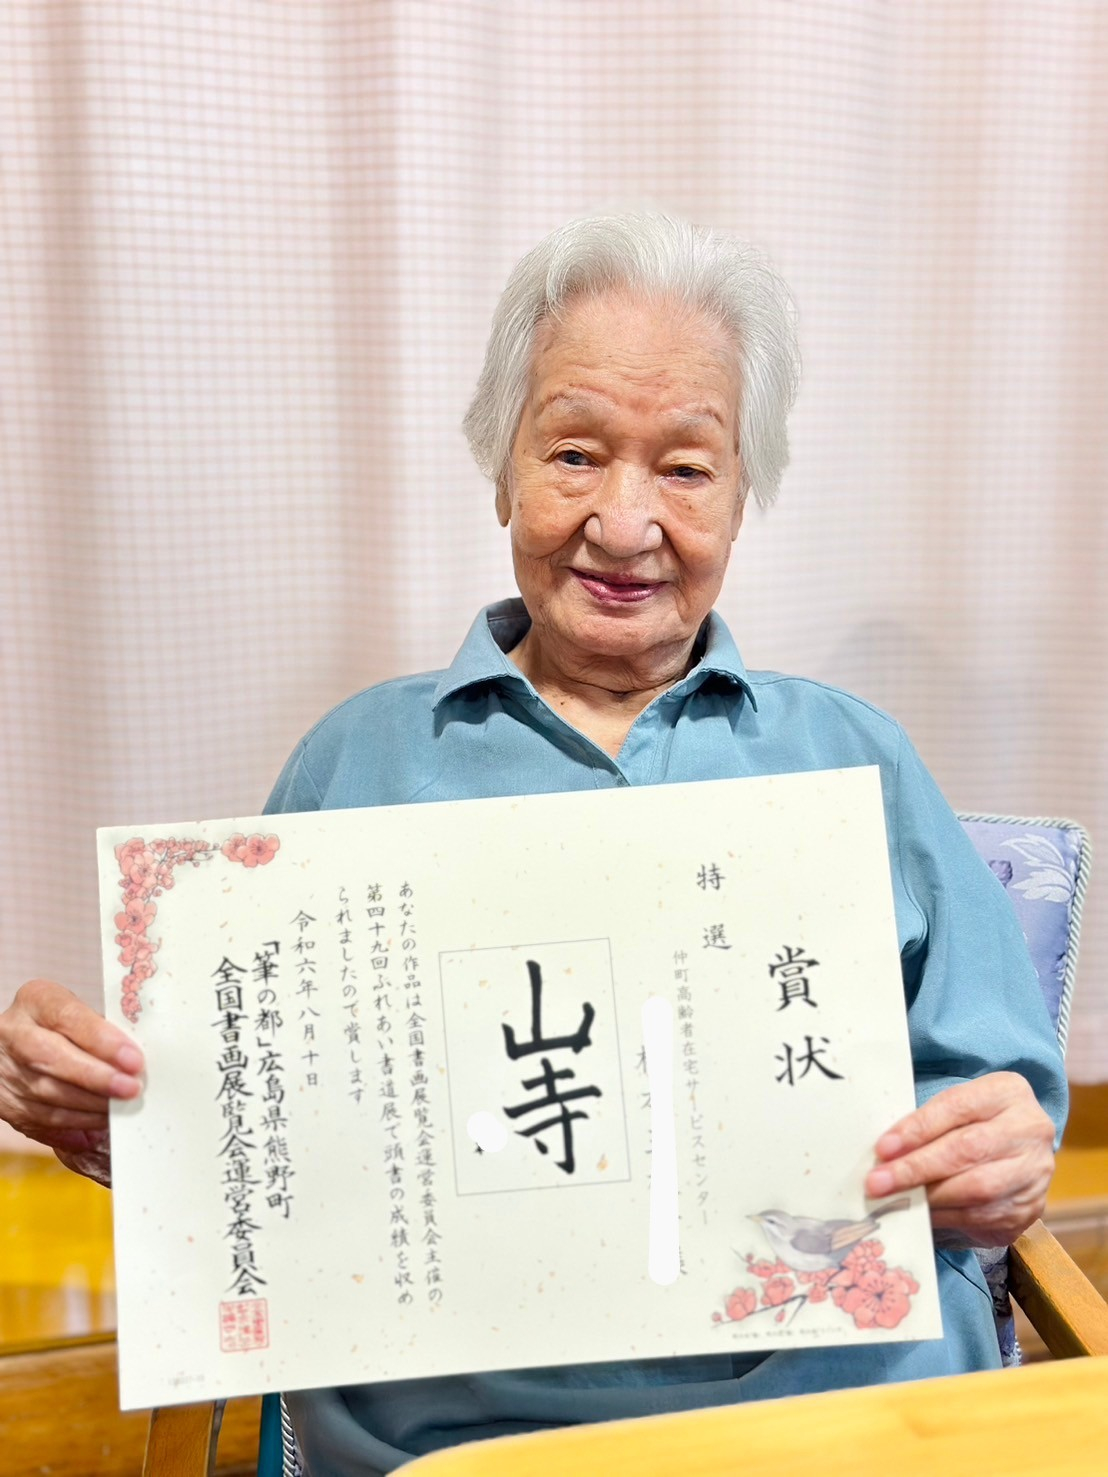 賞状
特選
仲町高齢者在宅サービスセンター
山寺
あなたの作品は全国書画展覧会運営委員会主催の
第四十九回ふれあい書道展で頭書の成績を収め
られましたので賞します
令和六年八月十日
「筆の都」広島県熊野町
全国書画展覧会運営委員会